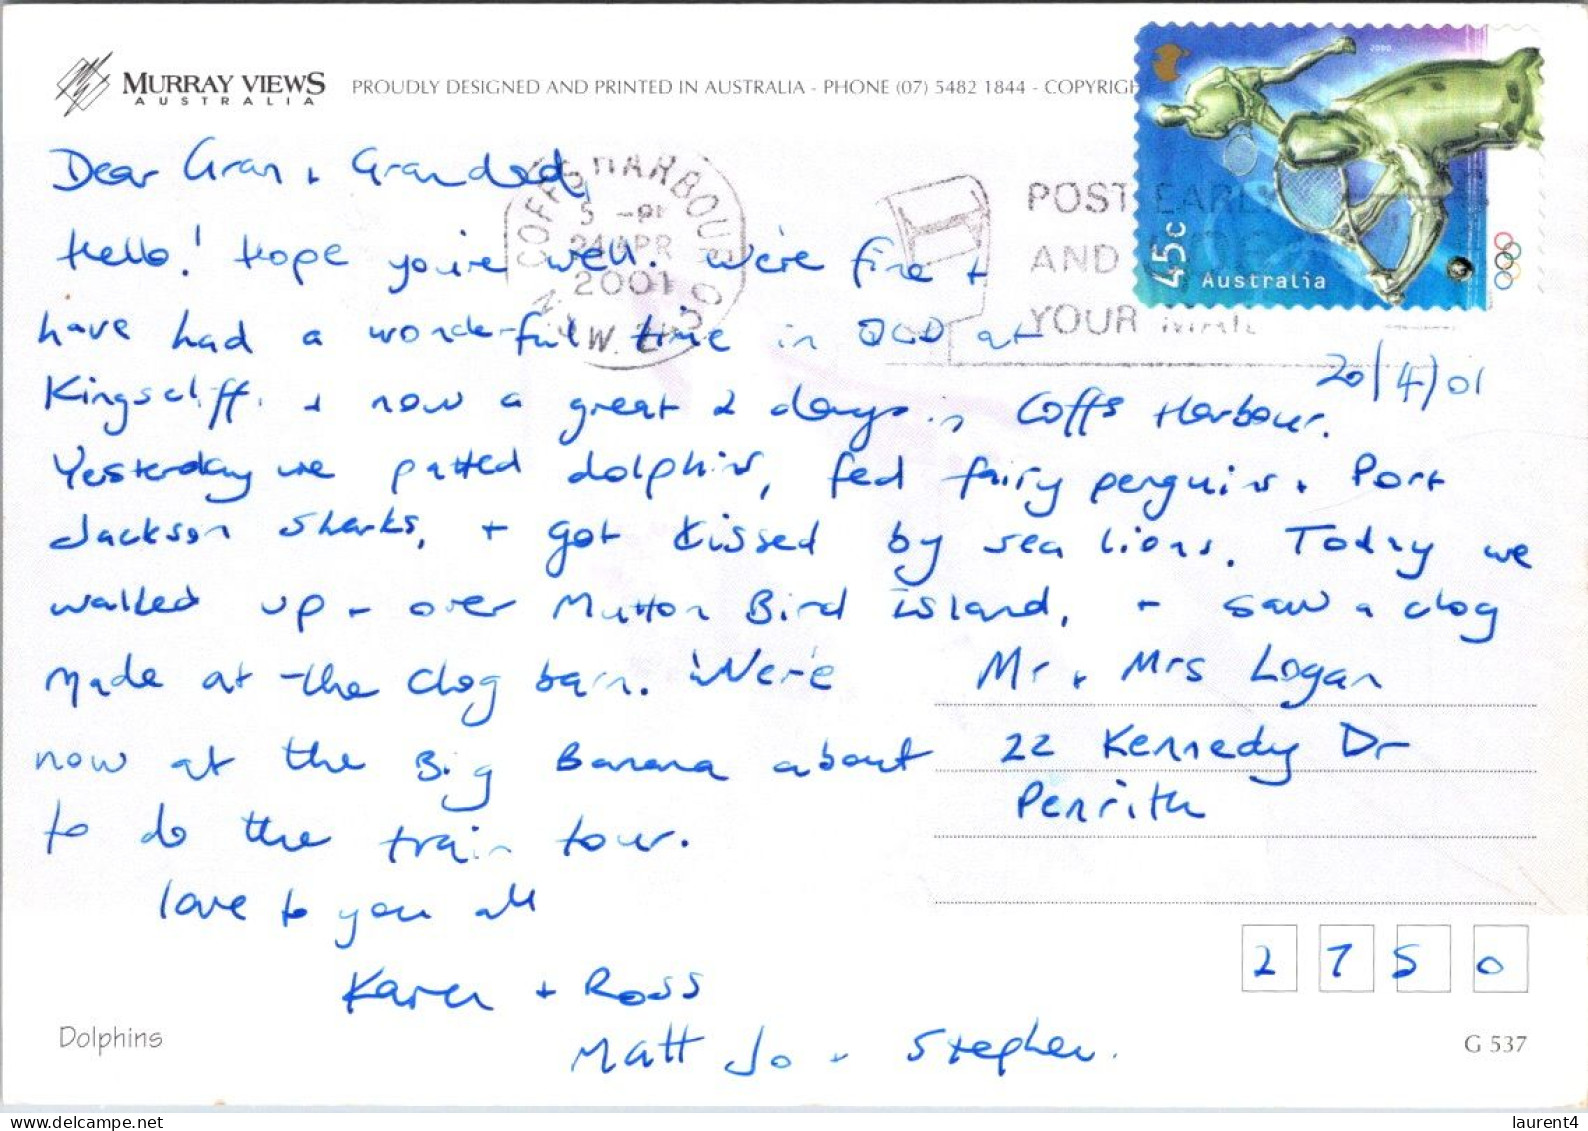 MURRAY VIEWS
AUSTRALIA
PROUDLY DESIGNED AND PRINTED IN AUSTRALIA - PHONE (07) 5482 1844 - COPYRIGH
2000
45c
Australia
COFFS HARBOUR
24 APR
2001
N.S.W. 2450
POST EARLY
AND
YOUR MAIL
Dear Gran + Grandad,
Hello! Hope you're well. We're fine +
have had a wonderful time in QLD at
20/4/01
Kingscliff. + now a great 2 days in Coffs Harbour.
Yesterday we patted dolphins, fed fairy penguins + Port
Jackson sharks, + got kissed by sea lions. Today we
walked up + over Mutton Bird Island, + saw a clog
made at the clog barn. We're
now at the Big Banana about
to do the train tour.
love to you all
Karen + Ross
Matt Jo + Stephen.
Mr + Mrs Logan
22 Kennedy Dr
Penrith
2 7 5 0
Dolphins
G 537
laurent4